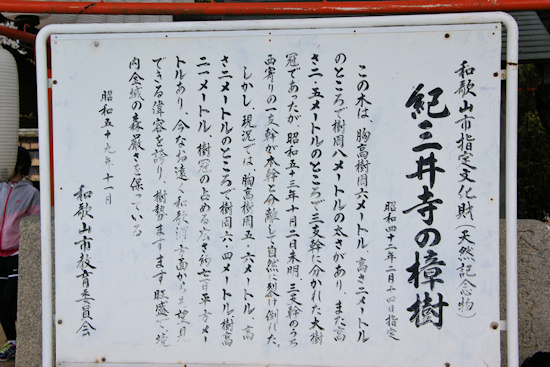 和歌山市指定文化財(天然記念物)
紀三井寺の樟樹
昭和四十二年二月十四日指定
この木は、胸高樹周六メートル、高さ二メートル
のところで樹周八メートルの太さがあり、また高
さ二・五メートルのところで三支幹に分かれた大樹
冠であったが、昭和五十三年十月二日未明、三支幹のうち
西寄りの一支幹が本幹と分離して自然に裂け倒れた。
しかし、現況では、胸高樹周五・六メートル、高
さ二メートルのところで樹周六・四メートル、樹高
二一メートル、樹冠の占める広さ約七一〇平方メー
トルあり、今なお遠く和歌浦方面からも望見
できる偉容を誇り、樹勢ますます旺盛で、境
内全域の森厳さを保っている
昭和五十九年、十一月
和歌山市教育委員会